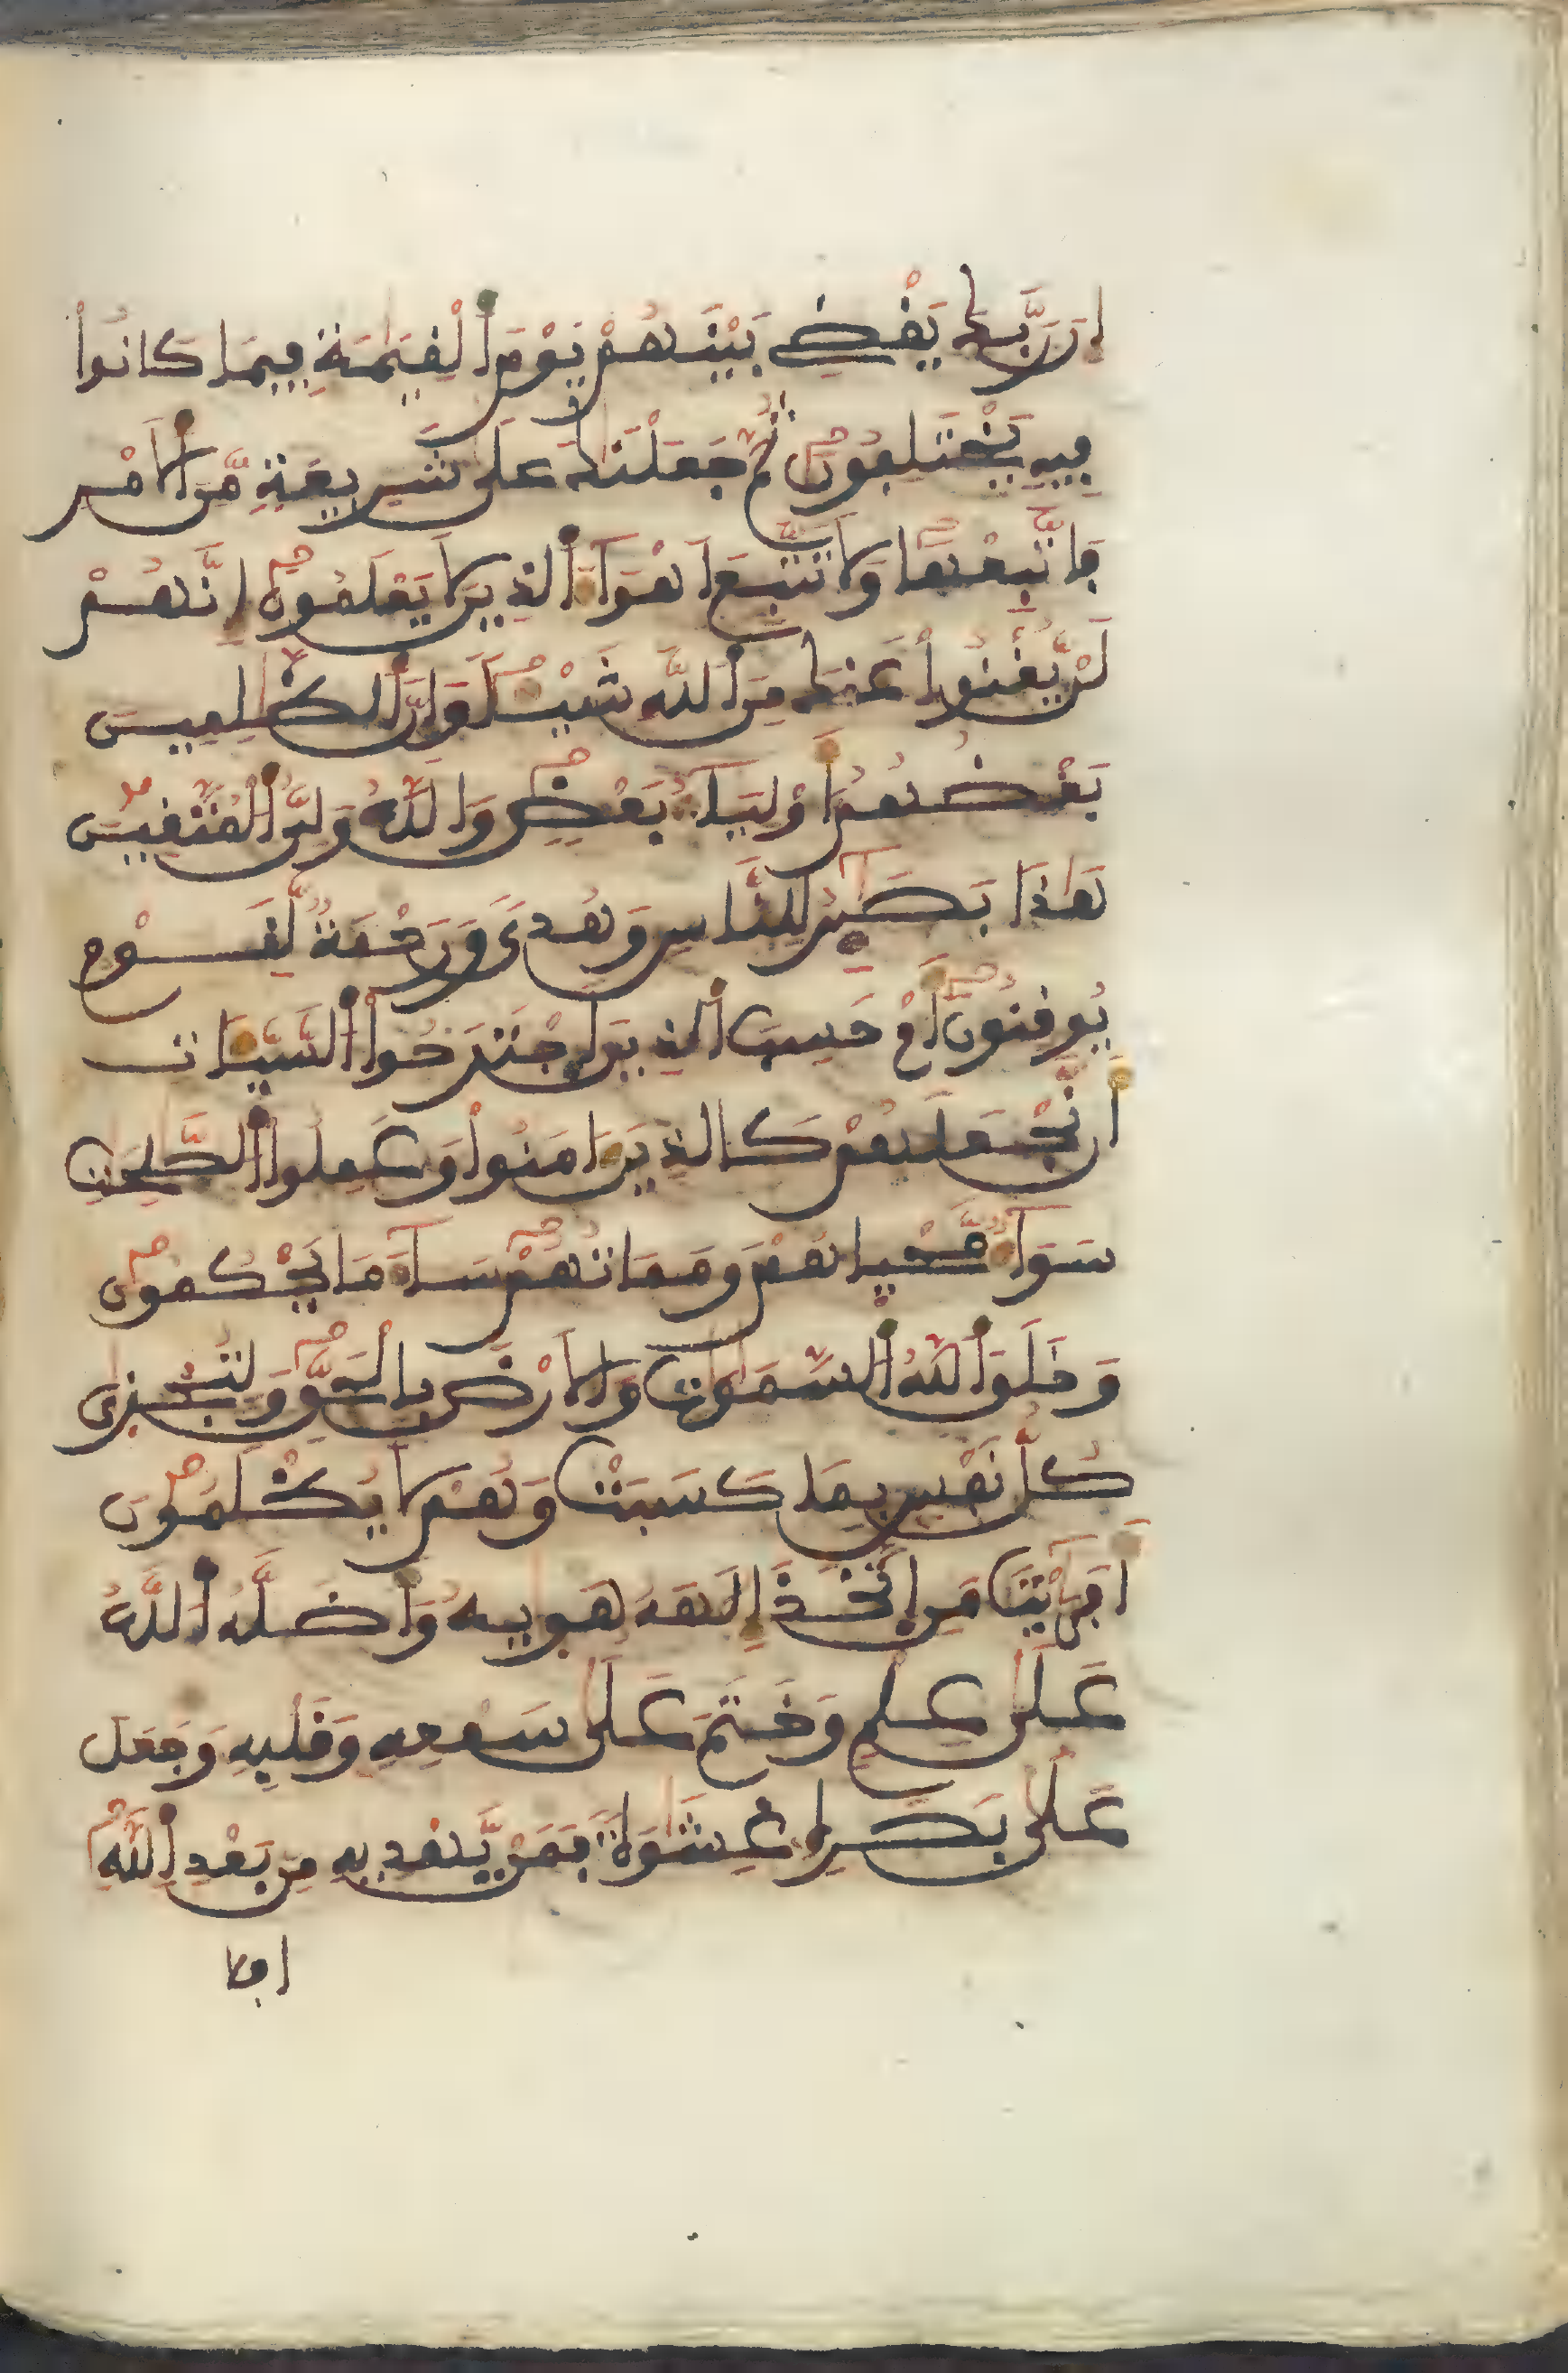 إِنَّ رَبَّكَ يَقْضِے بَيْنَهُمْ يَوْمَ اَ۬لْقِيَٰمَةِ فِيمَا كَانُواْ
فِيهِ يَخْتَلِفُونَ ثُمَّ جَعَلْنَٰكَ عَلَىٰ شَرِيعَةٖ مِّنَ اَ۬لَامْرِ
فَاتَّبِعْهَا وَلَا تَتَّبِعَ اَهْوَآءَ اَ۬لذِينَ لَا يَعْلَمُونَ إِنَّهُمْ
لَنْ يُّغْنُواْ عَنكَ مِنَ اَ۬للَّهِ شَيْـٔاٗ وَإِنَّ اَ۬لظَّٰلِمِينَ
بَعْضُهُمُۥٓ أَوْلِيَآءُ بَعْضٖ وَاللَّهُ وَلِيُّ اُ۬لْمُتَّقِينَ
هَٰذَا بَصَٰٓئِرُ لِلنَّاسِ وَهُدىٗ وَرَحْمَةٞ لِّقَوْمٖ
يُوقِنُونَ أَمْ حَسِبَ اَ۬لذِينَ اَ۪جْتَرَحُواْ اُ۬لسَّيِّـَٔاتِ
أَن نَّجْعَلَهُمْ كَالذِينَ ءَامَنُواْ وَعَمِلُواْ اُ۬لصَّٰلِحَٰتِ
سَوَآءٞ مَّحْياهُمْ وَمَمَاتُهُمْ سَآءَ مَا يَحْكُمُونَ
وَخَلَقَ اَ۬للَّهُ اُ۬لسَّمَٰوَٰتِ وَالَارْضَ بِالْحَقِّ وَلِتُجْزَىٰ
كُلُّ نَفْسِۢ بِمَا كَسَبَتْ وَهُمْ لَا يُظْلَمُونَ
أَفَرَٰٓيْتَ مَنِ اِ۪تَّخَذَ إِلَٰهَهُۥ هَو۪يٰهُ وَأَضَلَّهُ اُ۬للَّهُ
عَلَىٰ عِلْمٖ وَخَتَمَ عَلَىٰ سَمْعِهِۦ وَقَلْبِهِۦ وَجَعَلَ
عَلَىٰ بَصَرِهِۦ غِشَٰوَةٗ فَمَنْ يَّهْدِيهِ مِنۢ بَعْدِ اِ۬للَّهِ
افلا